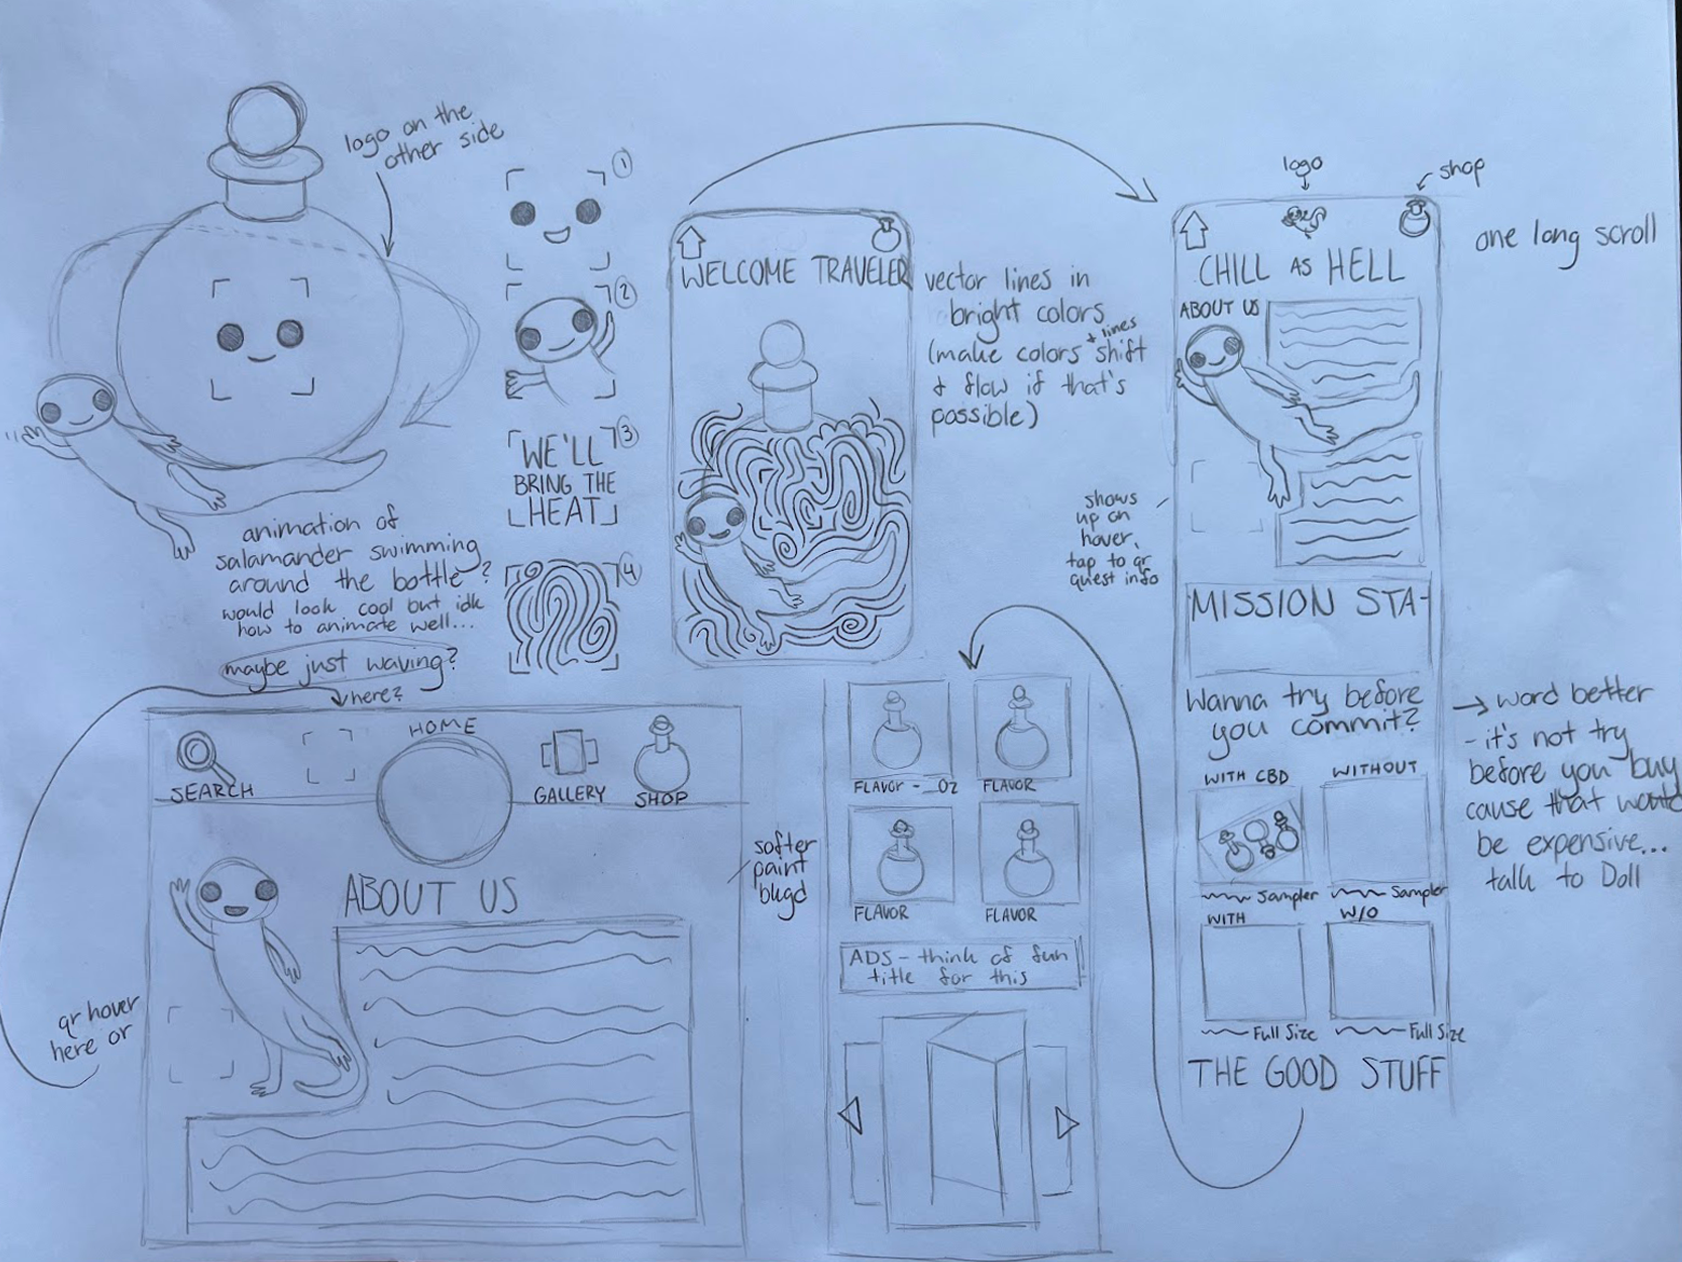 logo on the
other side
animation of
salamander swimming
around the bottle?
would look cool but idk
how to animate well...
maybe just waving?
here?
1
2
3
WE'LL
BRING THE
HEAT
4
WELCOME TRAVELER
vector lines in
bright colors
(make colors + lines shift
& flow if that's
possible)
logo
shop
one long scroll
CHILL AS HELL
ABOUT US
shows
up on
hover,
tap to qr
quest info
MISSION STA-
Wanna try before
you commit?
→ word better
- it's not try
before you buy
cause that would
be expensive...
talk to Doll
WITH CBD
WITHOUT
Sampler
Sampler
WITH
W/O
Full Size
Full Size
THE GOOD STUFF
FLAVOR - _ OZ
FLAVOR
FLAVOR
FLAVOR
ADS - think of fun
title for this
SEARCH
HOME
GALLERY
SHOP
ABOUT US
softer
paint
bkgd
qr hover
here or